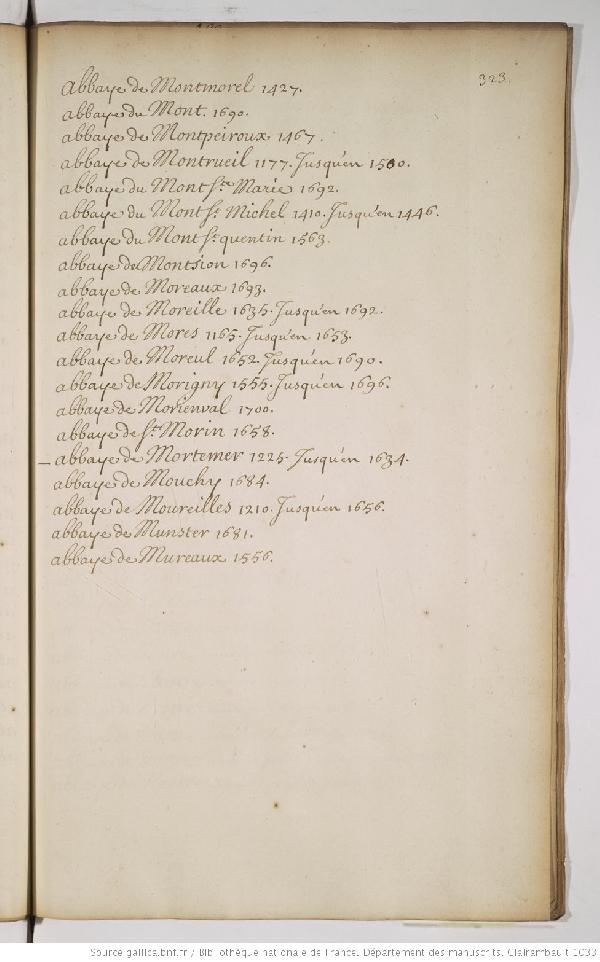 323.
abbaye de Montmorel 1427.
abbaye du Mont. 1690.
abbaye de Montpeiroux 1467.
abbaye de Montrueil 1177. Jusqu'en 1500.
abbaye du Mont Ste Marie 1692.
abbaye du Mont St Michel 1410. Jusqu'en 1446.
abbaye du Mont St quentin 1563.
abbaye du Montsion 1696.
abbaye de Moreaux 1693.
abbaye de Moreille 1635. Jusqu'en 1692.
abbaye de Mores 1165. Jusqu'en 1653.
abbaye de Moreul 1652. Jusqu'en 1690.
abbaye de Morigny 1555. Jusqu'en 1696.
abbaye de Morienval 1700.
abbaye de St Morin 1658.
_ abbaye de Mortemer 1225. Jusqu'en 1634.
abbaye de Mouchy 1684.
abbaye de Moureilles 1210. Jusqu'en 1656.
abbaye de Munster 1681.
abbaye de Mureaux 1556.
Source gallica.bnf.fr / Bibliothèque nationale de France. Département des manuscrits. Clairambault 1033